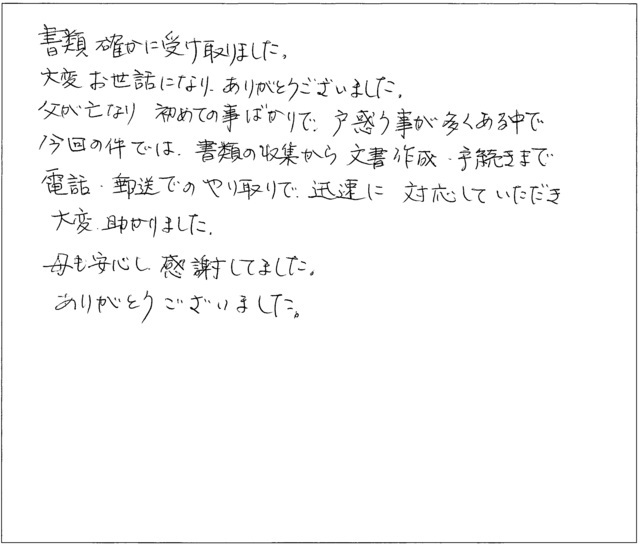 書類 確かに受け取りました。
大変 お世話になり、ありがとうございました。
父が亡なり 初めての事ばかりで、戸惑う事が多くある中で
今回の件では、書類の収集から 文書作成・手続きまで
電話・郵送でのやり取りで、迅速に 対応していただき
大変 助かりました。
母も安心し 感謝してました。
ありがとうございました。